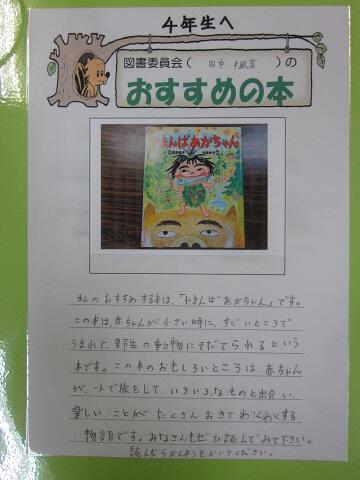 4年生へ
図書委員会( 田中 )の
おすすめの本
やまんばあかちゃん
私のおすすめする本は、「やまんばあかちゃん」です。
この本は、赤ちゃんが小さい時に、すごいところで
うまれて、野生の動物にそだてられるという
本です。この本のおもしろいところは、赤ちゃん
が、一人で旅をして、いろいろなものと出会い、
楽しいことがたくさんおきてわくわくする
物語です。みなさんもぜひ読んでみて下さい。
読んだらかんそうをかいてください。